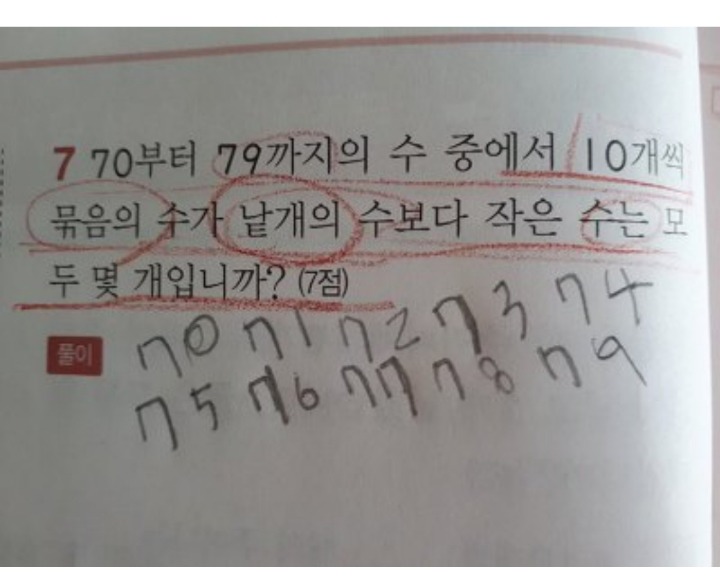 7 70부터 79까지의 수 중에서 10개씩
묶음의 수가 낱개의 수보다 작은 수는 모
두 몇 개입니까? (7점)
풀이 70 71 72 73 74
75 76 77 78 79